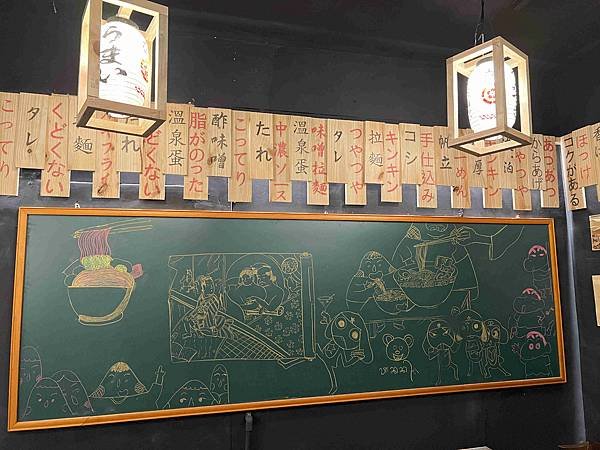 うまい
こってり
タレ
くどくない
麺
たれ
くどくない
温泉蛋
脂がのった
酢味噌
こってり
たれ
中濃ソース
温泉蛋
味噌拉麵
タレ
つやつや
拉麵
キンキン
コシ
手仕込み
帆立
厚
泊
つやつや
からあげ
あつあつ
コクがある
ほっけ